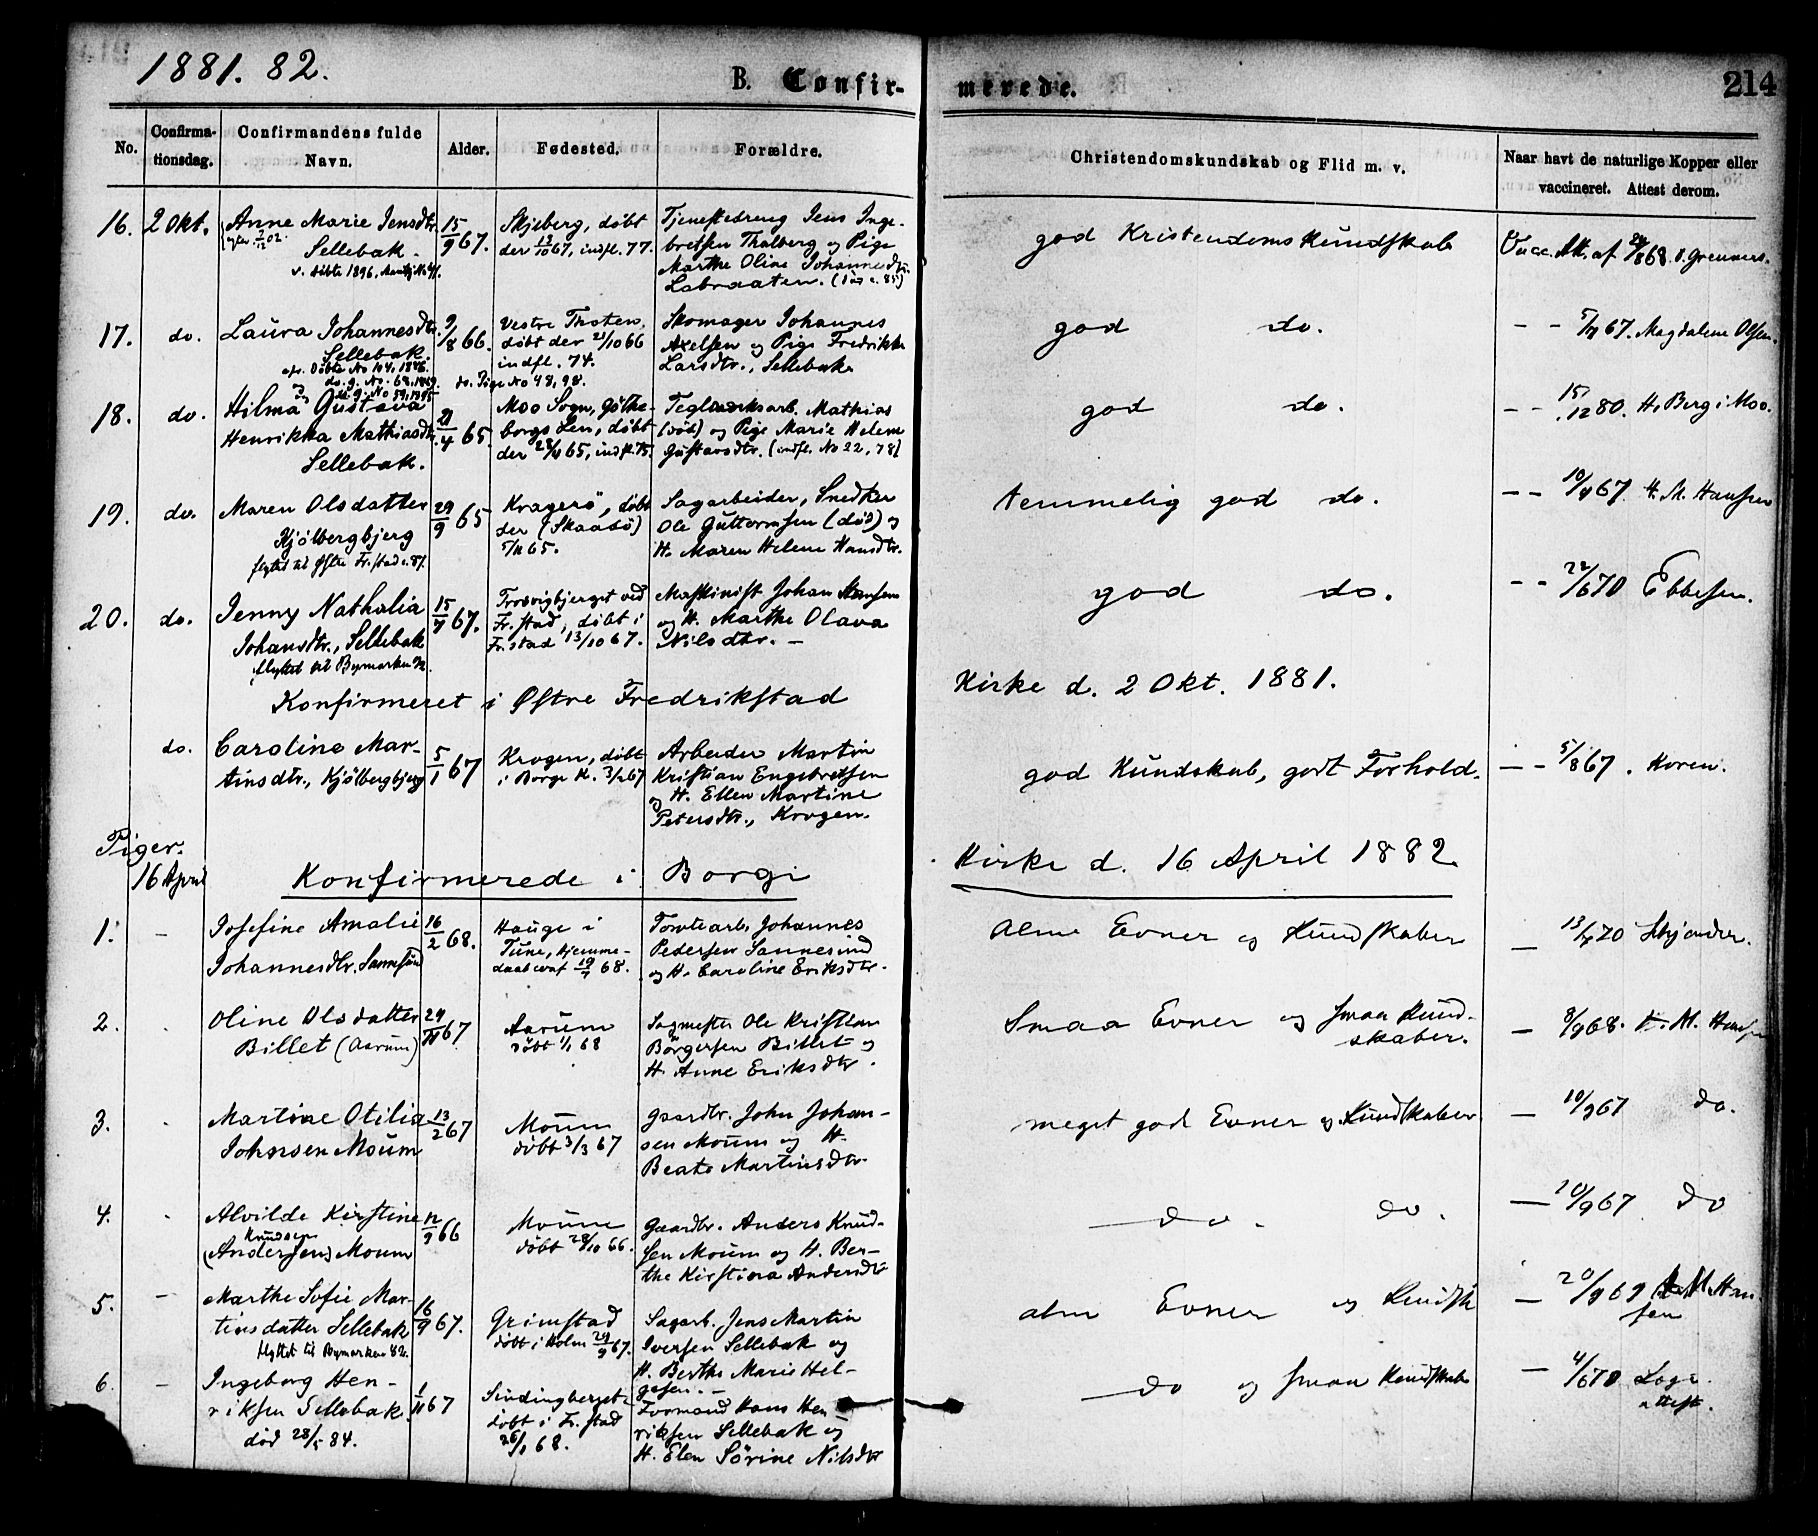 1881. 82.
B. Confir-
merede.
214
No.
Confirma-
tionsdag.
Confirmandens fulde
Navn.
Alder.
Fødested.
Forældre.
Christendomskundskab og Flid m. v.
Naar havt de naturlige Kopper eller
vaccineret. Attest derom.
16. 2 Okt. Anne Marie Jensdtr.
Sellebak.
15/9 67.
Skjeberg, døbt
der 13/10 67, indfl. 77.
Tjenestedreng Jens Inge-
bretsen Thalberg og Pige
Marthe Oline Johannesdtr.
Labraaten.
god Kristendomskundskab
Vacc. Att. af 24/8 68.
17. do. Laura Johannesdtr.
Sellebak.
9/8 66.
Vestre Thoten,
døbt der 21/10 66
indfl. 74.
Skomager Johannes
Axelsen og Pige Fredrikke
Larsdtr., Sellebak
god do.
- - 5/7 67. Magdalene Olsen.
do. Pige No 48, 98.
18. do. Hilma Gustava
Henrikka Mathiasdtr.
Sellebak.
21/4 65.
Moo Sogn, Gøthe-
borgs Len, døbt
der 28/4 65, indfl. 75.
Teglværksarb. Mathias
(død) og Pige Marie Helene
Gustavsdtr. (indfl. No 22, 78)
god do.
- - 15/12 80. H. Berg i Moo.
19. do. Maren Olsdatter
Kjølbergbjerg
flyttet til Østre Fr.stad
29/9 65
Kragerø, døbt
der (Skaatø)
5/11 65.
Sagarbeider, Snedker
Ole Guttormsen (død) og
H. Maren Helene Hansdtr.
temmelig god do.
- - 10/9 67. H. M. Hansen
20. do. Jenny Nathalia
Johansdtr., Sellebak
flyttet til Bymarken
15/7 67.
Trosvigbjerget ved
Fr.stad, døbt i
Fr.stad 13/10 67.
Maskinist Johan Hansen
og H. Marthe Olava
Nilsdtr. -
god do.
- - 22/6 70 Ebbesen.
Konfirmeret i Østre Fredrikstad
Kirke d. 2 Okt. 1881.
do. Caroline Mar-
tinsdtr., Kjølbergbjerg
5/1 67
Krogen, døbt
i Borge K. 3/2 67
Arbeider Martin
Kristian Engebretsen
og H. Ellen Martine
Petersdtr., Krogen.
god Kundskab, godt Forhold.
- - 5/8 67. Koren.
Piger.
16 April
Konfirmerede i Borge
Kirke d. 16 April 1882.
1. - Josefine Amalie
Johannesdtr. Sannesund
16/2 68.
Hauge i
Tune, hjemme-
døbt 68.
Tomtearb. Johannes
Pedersen Sannesund
og H. Caroline Eriksdtr.
Alm. Evner og Kundskaber
- 13/7 70
2. Oline Olsdatter
Billet (Aarum)
24/11 67
Aarum
døbt 1/1 68
Sagmester Ole Kristian
Børgersen Billet og
H. Anne Eriksdtr.
Smaa Evner og smaa Kund-
skaber.
- 8/9 68. H. M. Hansen
3. Martine Otilia
Johnsen Moum
13/2 67
Moum
døbt 3/3 67
Gaardbr. John Johan-
sen Moum og H.
Beate Martinsdtr.
meget god Evner og Kundskaber
- 10/9 67 do.
4. Alvilde Kirstine
Knudsen
(Andersen) Moum
12/9 66
Moum
døbt 28/10 66.
Gaardbr. Anders Knud-
sen Moum og H. Ber-
the Kirstina Andersdtr
do. do.
- 10/9 67 do
5. - Marthe Sofie Mar-
tinsdatter Sellebak
flyttet til Bymarken 82.
16/9 67.
Grimstad
døbt i Holm 29/9 67.
Sagarb. Jens Martin
Iversen Sellebak og
H. Berthe Marie Hel-
gesen. -
alm Evner og Kundsk
- 20/9 69 H. M. Han
sen
6. - Ingeborg Hen-
riksen Sellebak.
død 28/5 84.
1/11 67
Sindingberget
døbt i Fr.stad
26/1 68.
Formand Hans Hen-
riksen Sellebak og
H. Elen Sørine Nilsdtr
do og smaa Kundskab
- 4/6 70
attest.